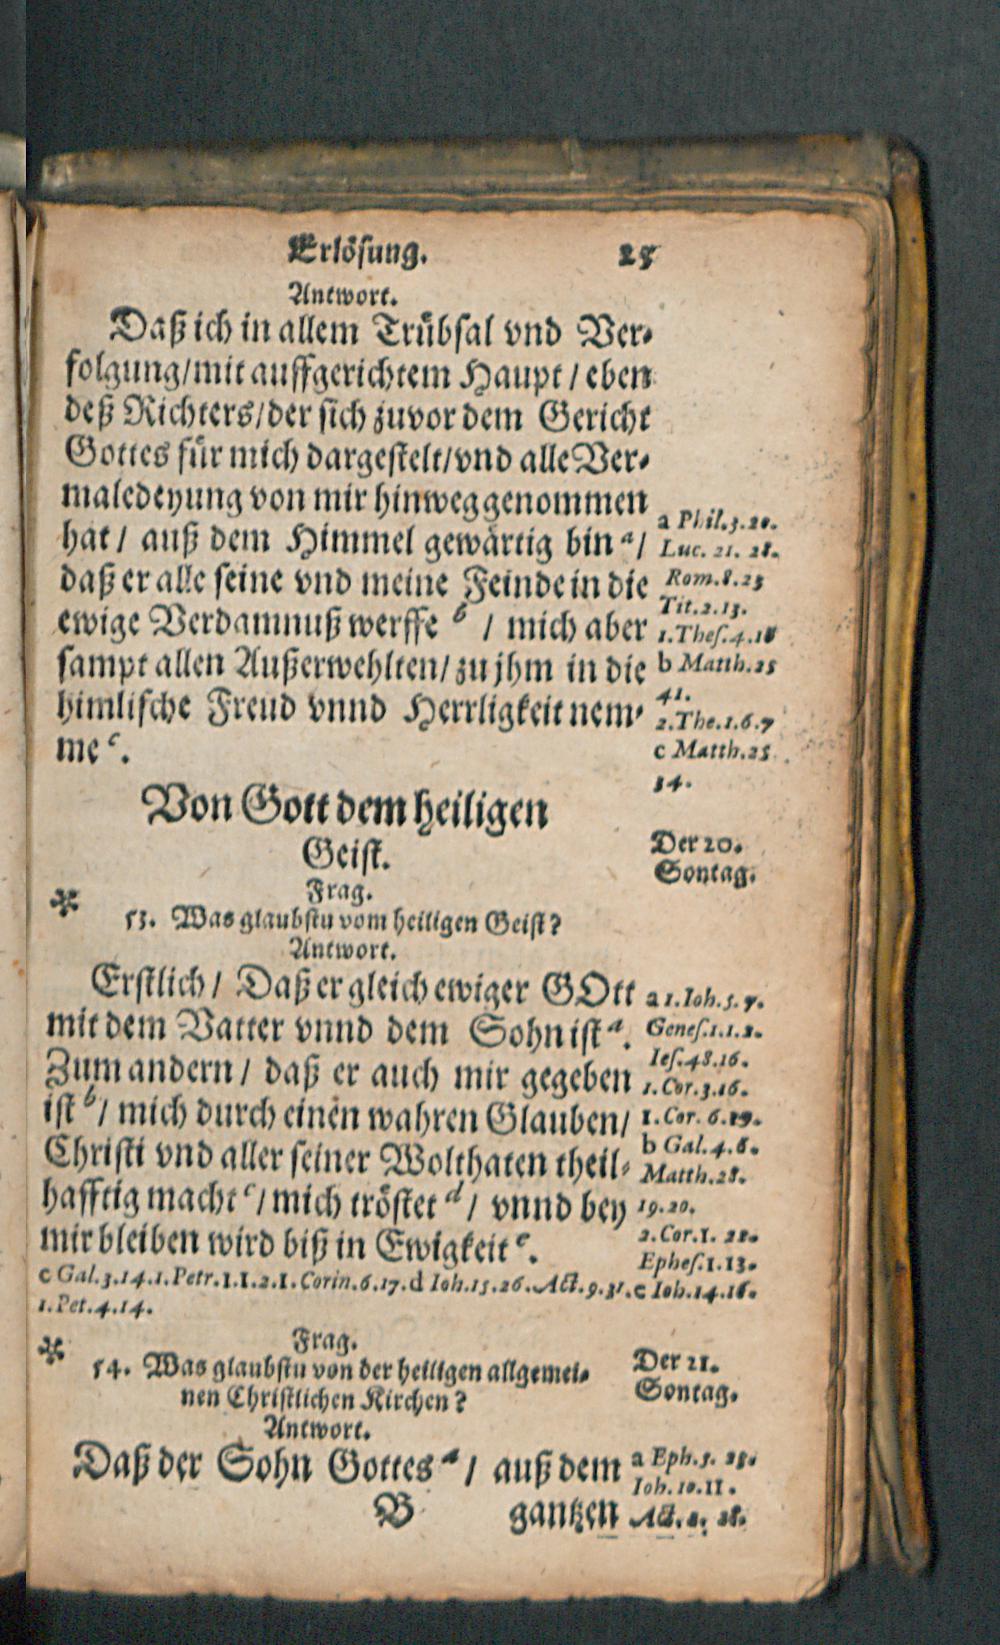 Erlösung. 25
Antwort.
Daß ich in allem Trübsal vnd Ver-
folgung/mit auffgerichtem Haupt / eben
deß Richters/der sich zuvor dem Gericht
Gottes für mich dargestelt/vnd alle Ver-
maledeyung von mir hinweg genommen
hat / auß dem Himmel gewärtig bin a/
daß er alle seine vnd meine Feinde in die
ewige Verdamnuß werffe b / mich aber
sampt allen Außerwehlten/ zu jhm in die
himlische Freud vnnd Herrligkeit nem-
me c.
a Phil.3.20.
Luc. 21. 28.
Rom.8.23
Tit.2.13.
1.Thes.4.16
b Matth.25
41.
2.The.1.6.7
c Matth.25
34.
Von Gott dem heiligen
Geist.
Der 20.
Sontag.
Frag.
* 53. Was glaubstu vom heiligen Geist?
Antwort.
Erstlich / Daß er gleich ewiger GOtt
mit dem Vatter vnnd dem Sohn ist a.
Zum andern / daß er auch mir gegeben
ist b/ mich durch einen wahren Glauben/
Christi vnd aller seiner Wolthaten theil-
hafftig macht c/ mich tröstet d/ vnnd bey
mir bleiben wird biß in Ewigkeit e.
a 1.Ioh.5.7.
Genes.1.1.2.
Ies.48.16.
1.Cor.3.16.
1.Cor. 6.19.
b Gal.4.6.
Matth.28.
19.20.
2.Cor.1. 21.
Ephes.1.13.
c Gal.3.14.1.Petr.1.1.2.1.Corin.6.17.d Ioh.15.26.Act.9.31.e Ioh.14.16.
1.Pet.4.14.
Frag.
* 54. Was glaubstu von der heiligen allgemei-
nen Christlichen Kirchen?
Der 21.
Sontag.
Antwort.
Daß der Sohn Gottes a / auß dem
a Eph.5.
Ioh.10.11.
B gantzen
Act.